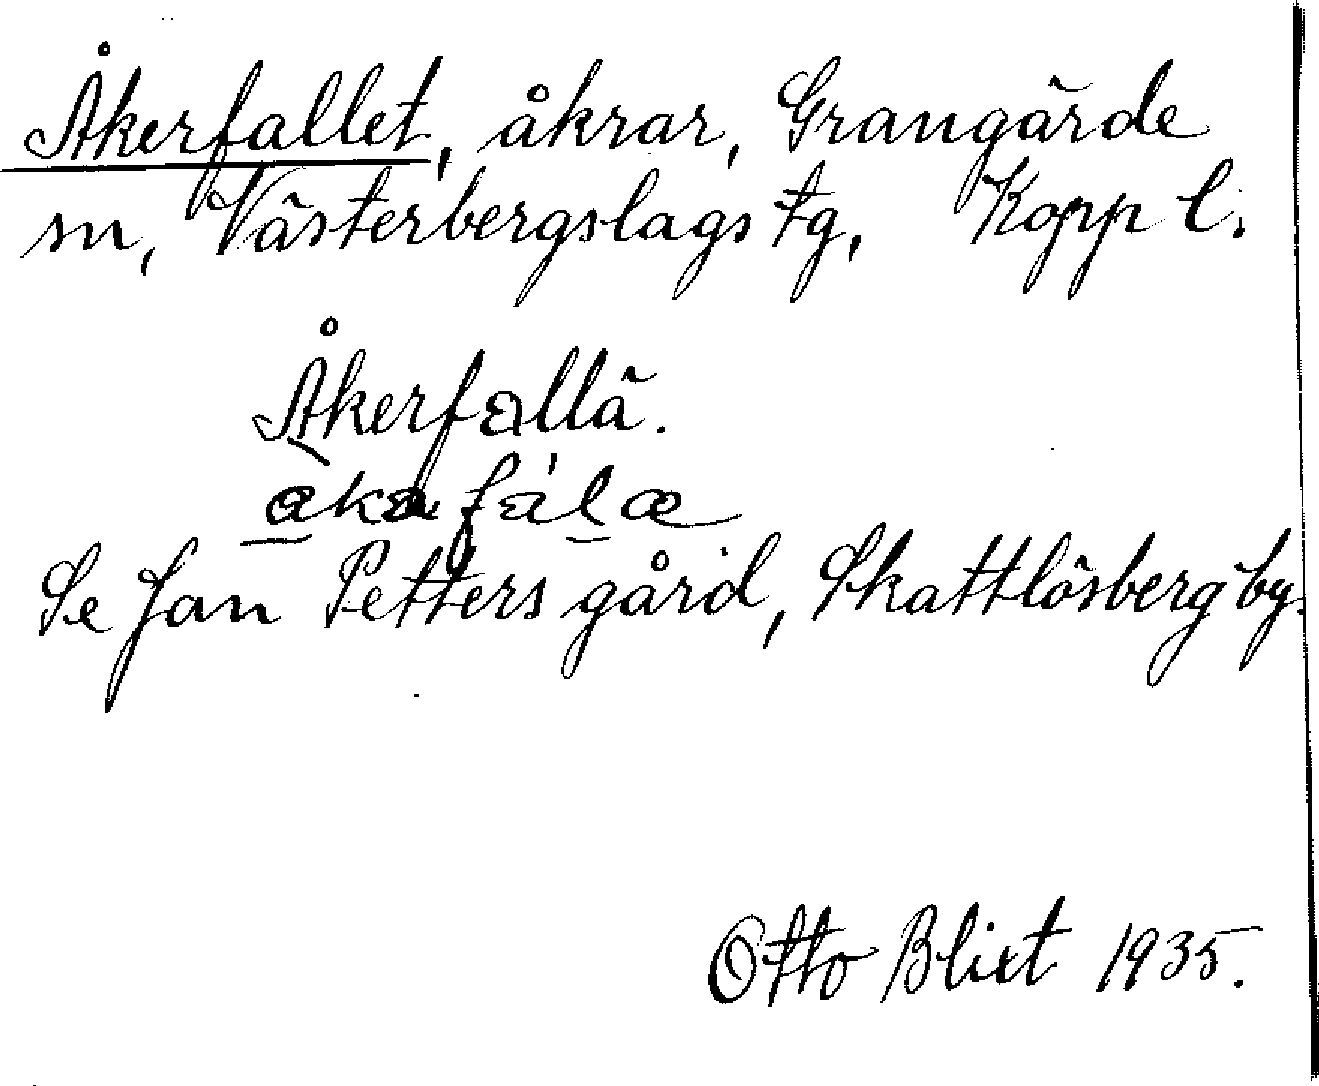 Åkerfallet, åkrar, Grangärde
sn, Västerbergslags tg, Kopp l.
Åkerfallä.
Se Jan Petters gård, Skattlösberg by.
Otto Blixt 1935.